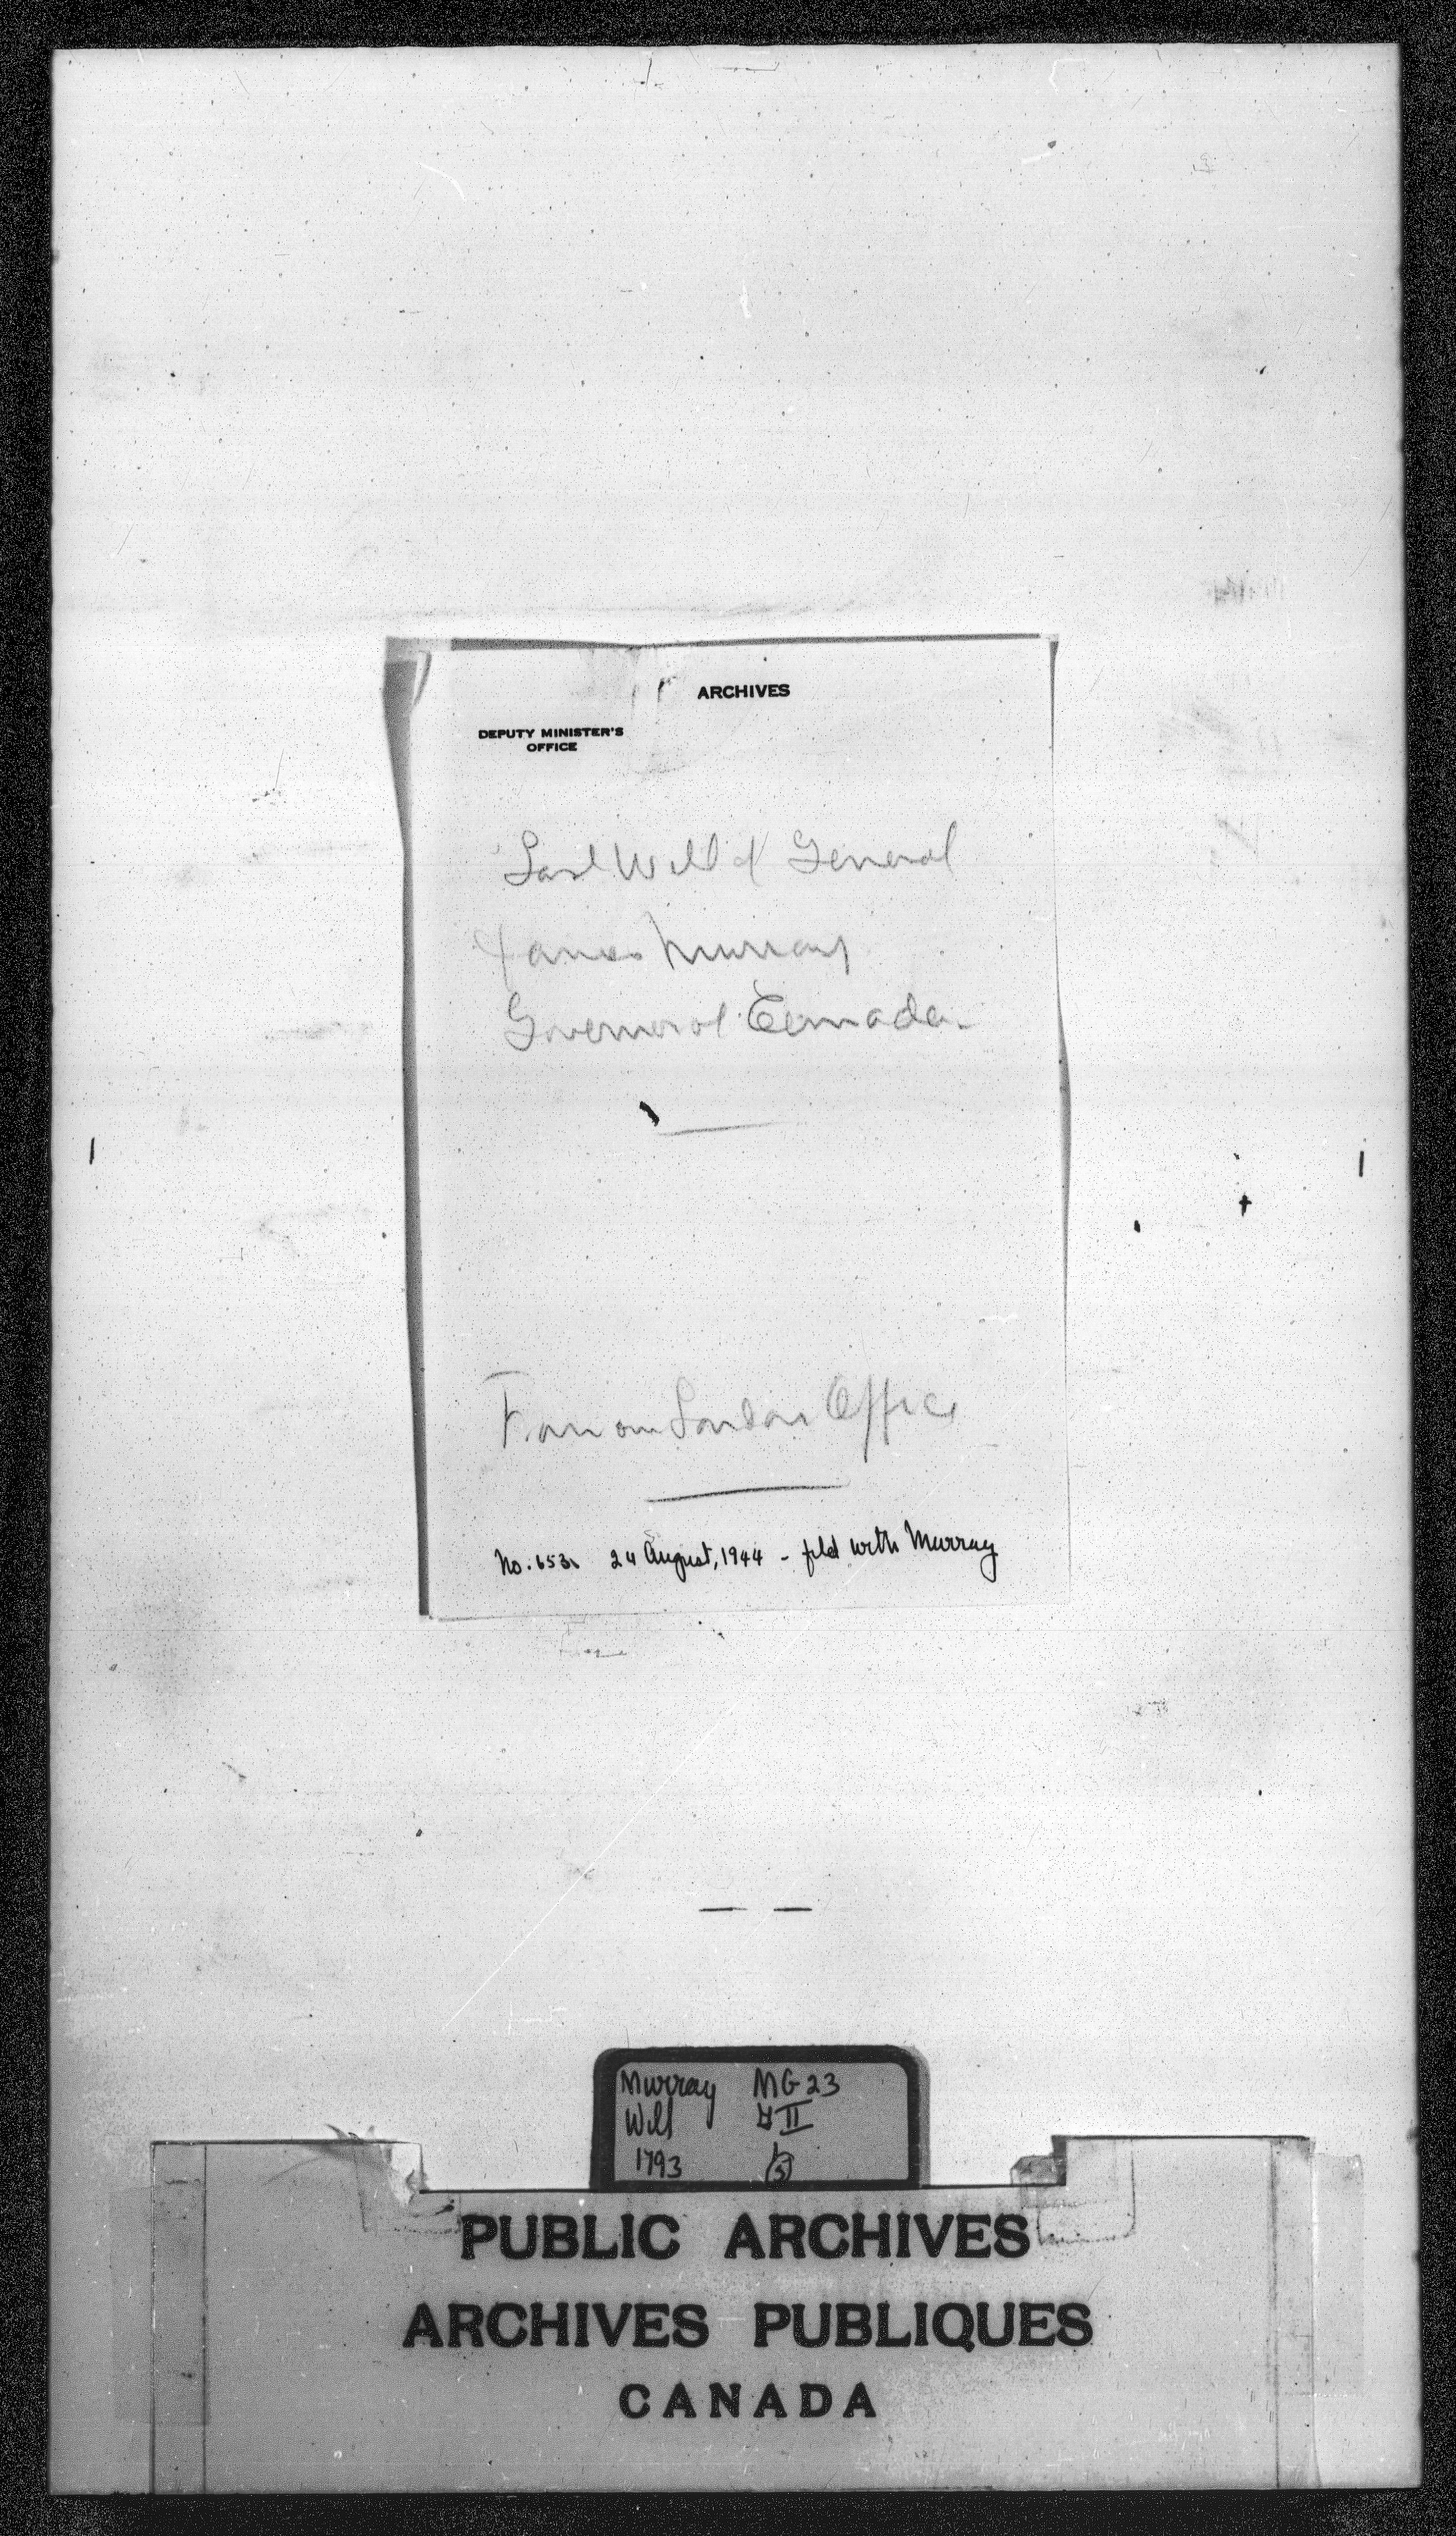 ARCHIVES
DEPUTY MINISTER'S
OFFICE
Last Will of General
James Murray
Governor of Canada.
From our London Office
No. 653 24 August, 1944 - filed with Murray
Murray MG 23
Will GII
1793 1
(5)
PUBLIC ARCHIVES
ARCHIVES PUBLIQUES
CANADA